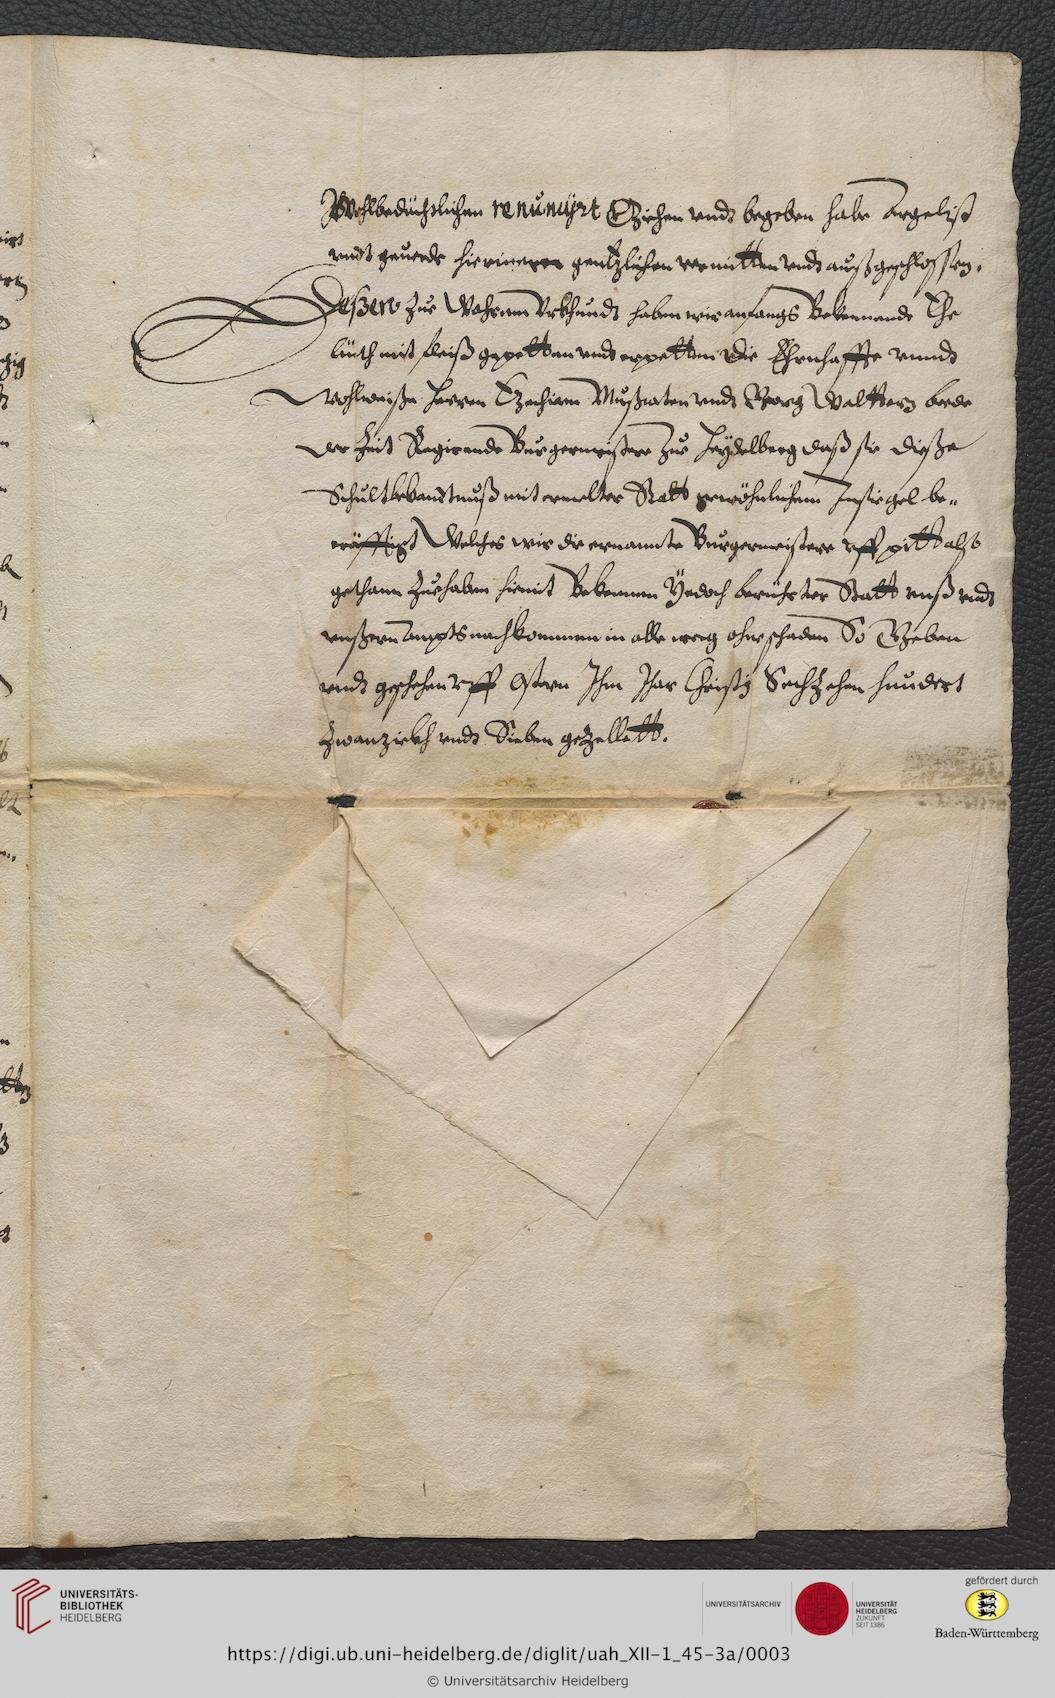 Wohlbedächtlichen renunciirt Verziehen vndt begeben habe Argelist
vndt geuerde hierinnen gentzlichen vermitten vndt außgeschlossen.
Deßen zur Wahrem Vrkhundt haben wir anfangs Bekennende Ehe
lüüth mit fleiß gepetten vndt erpetten die Ehrnhaffte vnndt
wohlweiße Herren vndt Georg Walttern beede
der Zeit Regirende Burgermeistere zur Heydelberg daß sie dieße
Schultbekandtnuß mit ermelter Statt gewöhnlichem Insiegel be„
cräfftigt Welches wir die ernannte Burgermeistere vff pitt also
gethann Zuhaben hiemit Bekennen Jedoch berührter Statt vnß vndt
vnßern Amptsnachkommen in alle weg ohne schaden So Geben
vndt geschehen vff Ostern Ihm Jhar Christj Sechzehen hundert
Zwanzickh vndt Sieben gezellett.
UNIVERSITÄTS-
BIBLIOTHEK
HEIDELBERG
UNIVERSITÄTSARCHIV
UNIVERSITÄT
HEIDELBERG
ZUKUNFT
SEIT 1386
gefördert durch
Baden-Württemberg
https://digi.ub.uni-heidelberg.de/diglit/uah_XII-1_45-3a/0003
© Universitätsarchiv Heidelberg